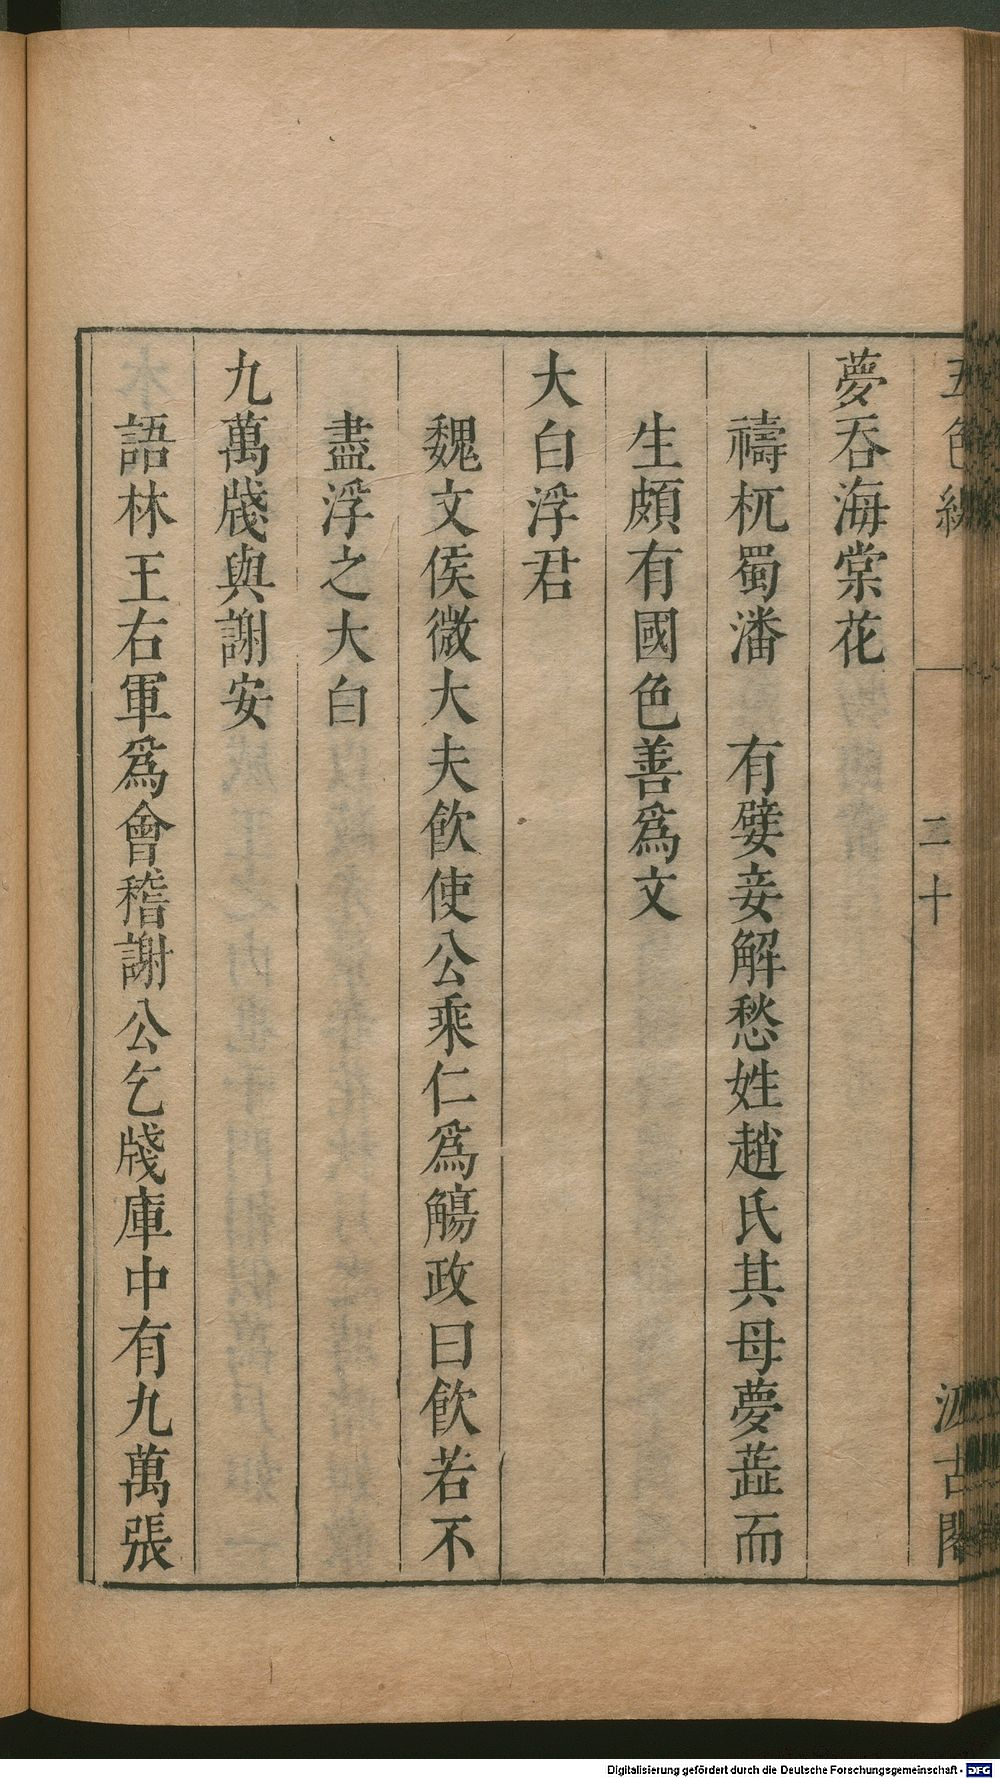 五色線 二十 汲古閣
夢吞海棠花
禱杌蜀潘 有嬖妾解愁姓趙氏其母夢蕋而
生頗有國色善爲文
大白浮君
魏文侯微大夫飮使公乘仁爲觴政曰飮若不
盡浮之大白
九萬牋與謝安
語林王右軍爲會稽謝公乞牋庫中有九萬張
Digitalisierung gefördert durch die Deutsche Forschungsgemeinschaft - DFG